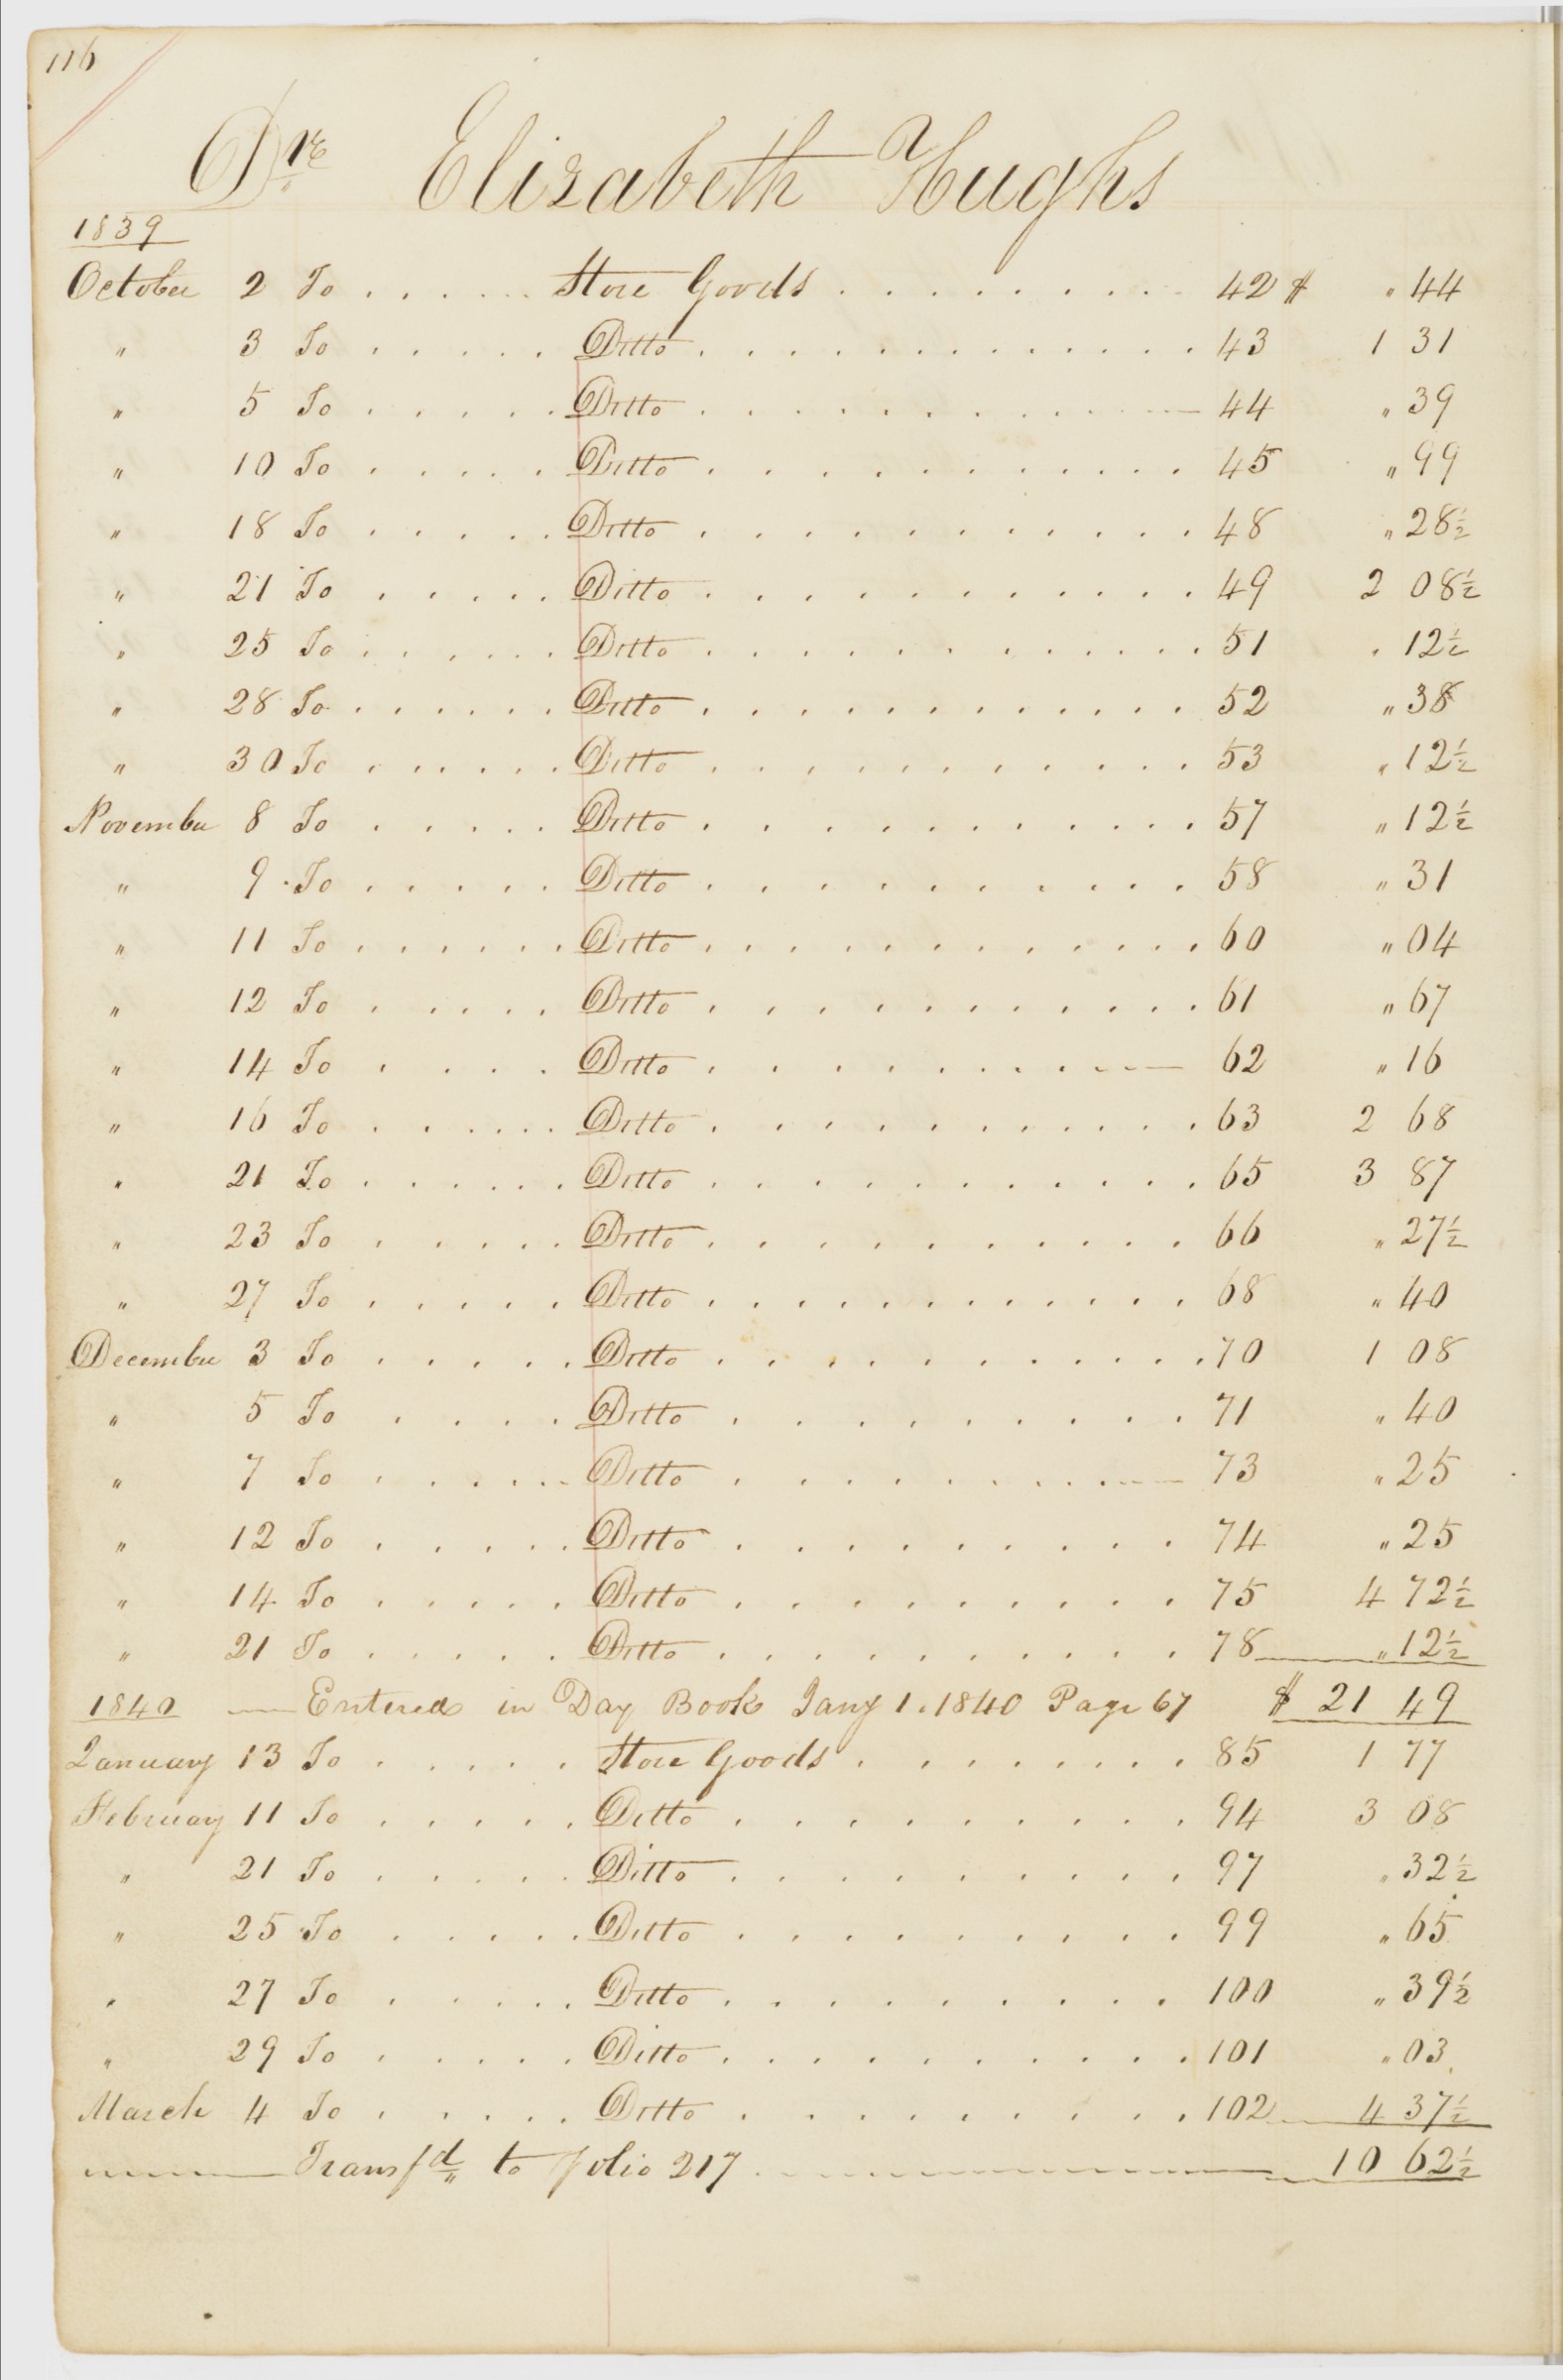 116
Dre Elizabeth Hughs
1839
October 2 To . . . . . . Store Goods . . . . . . . . . 42 $ " 44
" 3 To . . . . . Ditto . . . . . . . . . . . . . 43 1 31
" 5 To . . . . . Ditto . . . . . . . . . . . 44 " 39
" 10 To . . . . . Ditto . . . . . . . . . . . 45 " 99
" 18 To . . . . . Ditto . . . . . . . . . . . 48 " 28½
" 21 To . . . . . Ditto . . . . . . . . . . . 49 2 08½
" 25 To . . . . . . Ditto . . . . . . . . . . . . 51 " 12½
" 28 To . . . . . . Ditto . . . . . . . . . . . . 52 " 38
" 30 To . . . . . Ditto . . . . . . . . . . . 53 " 12½
November 8 To . . . . . Ditto . . . . . . . . . . . 57 " 12½
" 9 To . . . . . Ditto . . . . . . . . . . . 58 " 31
" 11 To . . . . . . Ditto . . . . . . . . . . . 60 " 04
" 12 To . . . . . Ditto . . . . . . . . . . . 61 " 67
" 14 To . . . . Ditto . . . . . . . . . . 62 " 16
" 16 To . . . . . . Ditto . . . . . . . . . . . 63 2 68
" 21 To . . . . . . Ditto . . . . . . . . . . . 65 3 87
" 23 To . . . . . Ditto . . . . . . . . . . 66 " 27½
" 27 To . . . . . Ditto . . . . . . . . . . . 68 " 40
December 3 To . . . . . Ditto . . . . . . . . . . . 70 1 08
" 5 To . . . . Ditto . . . . . . . . . . 71 " 40
" 7 To . . . . . Ditto . . . . . . . . . 73 " 25
" 12 To . . . . . Ditto . . . . . . . . . . 74 " 25
" 14 To . . . . . Ditto . . . . . . . . . . 75 4 72½
" 21 To . . . . . Ditto . . . . . . . . . . 78 " 12½
1840 — Entered in Day Book Jany 1. 1840 Page 67 $ 21 49
January 13 To . . . . . Store Goods . . . . . . . . 85 1 77
February 11 To . . . . . Ditto . . . . . . . . . . 94 3 08
" 21 To . . . . . Ditto . . . . . . . . . . 97 " 32½
" 25 To . . . . . Ditto . . . . . . . . . . 99 " 65
" 27 To . . . . . Ditto . . . . . . . . . . 100 " 39½
" 29 To . . . . . Ditto . . . . . . . . . . 101 " 03
March 4 To . . . . . Ditto . . . . . . . . . . 102 4 37½
Transfd to folio 217 10 62½